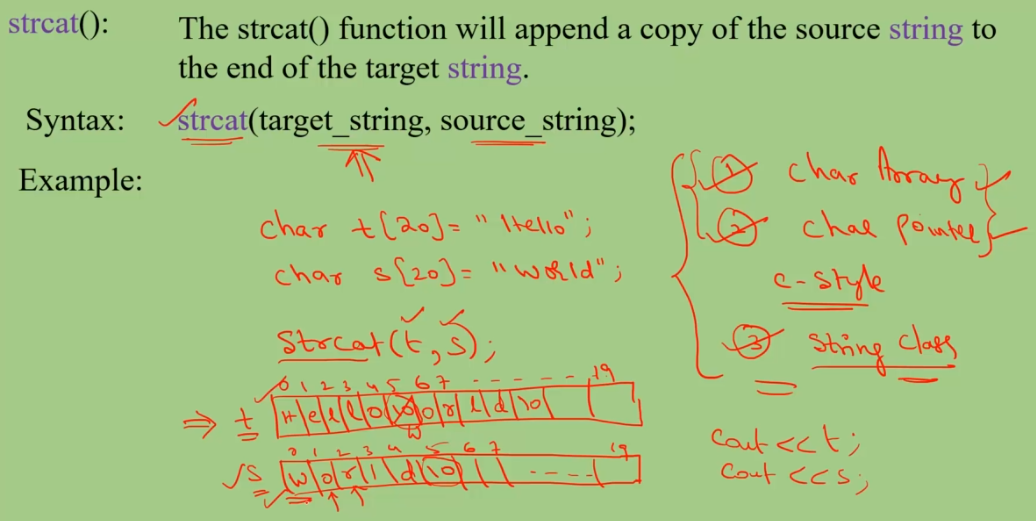 strcat(): The strcat() function will append a copy of the source string to
the end of the target string.
Syntax: strcat(target_string, source_string);
Example:
char t[20]= "Hello";
char s[20]= "World";
Strcat(t, s);
0 1 2 3 4 5 6 7 - - - - - - 19
⇒ t H e l l o \0 o r l d \0
W
0 1 2 3 4 5 6 7 19
s W o r l d \0 - - - -
1 char Array
2 char Pointer
c-style
3 string class
cout << t;
cout << s;